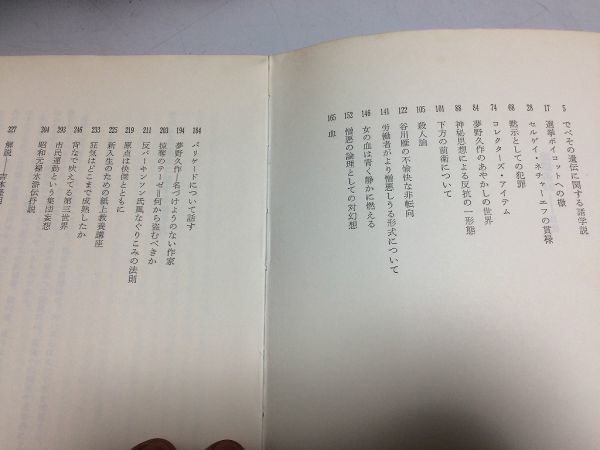 5 でべその遺伝に関する諸学説
17 選挙ボイコットへの檄
28 セルゲイ・ネチャーエフの貫禄
68 黙示としての犯罪
74 コレクターズ・アイテム
84 夢野久作のあやかしの世界
88 神秘思想による反抗の一形態
101 下方の前衛について
105 殺人論
122 谷川雁の不愉快な非転向
141 労働者がより憎悪しうる形式について
146 女の血は青く静かに燃える
152 憎悪の論理としての対幻想
165 血
184 バリケードについて話す
194 夢野久作=名づけようのない作家
203 掠奪のテーゼ=何から盗むべきか
211 反パーキンソン氏風なぐりこみの法則
219 原点は侠客とともに
225 新入生のための紙上教養講座
233 狂気はどこまで成熟したか
246 背なで吠えてる第三世界
293 市民運動という集団妄想
304 昭和元禄水滸伝抒説
327 解説